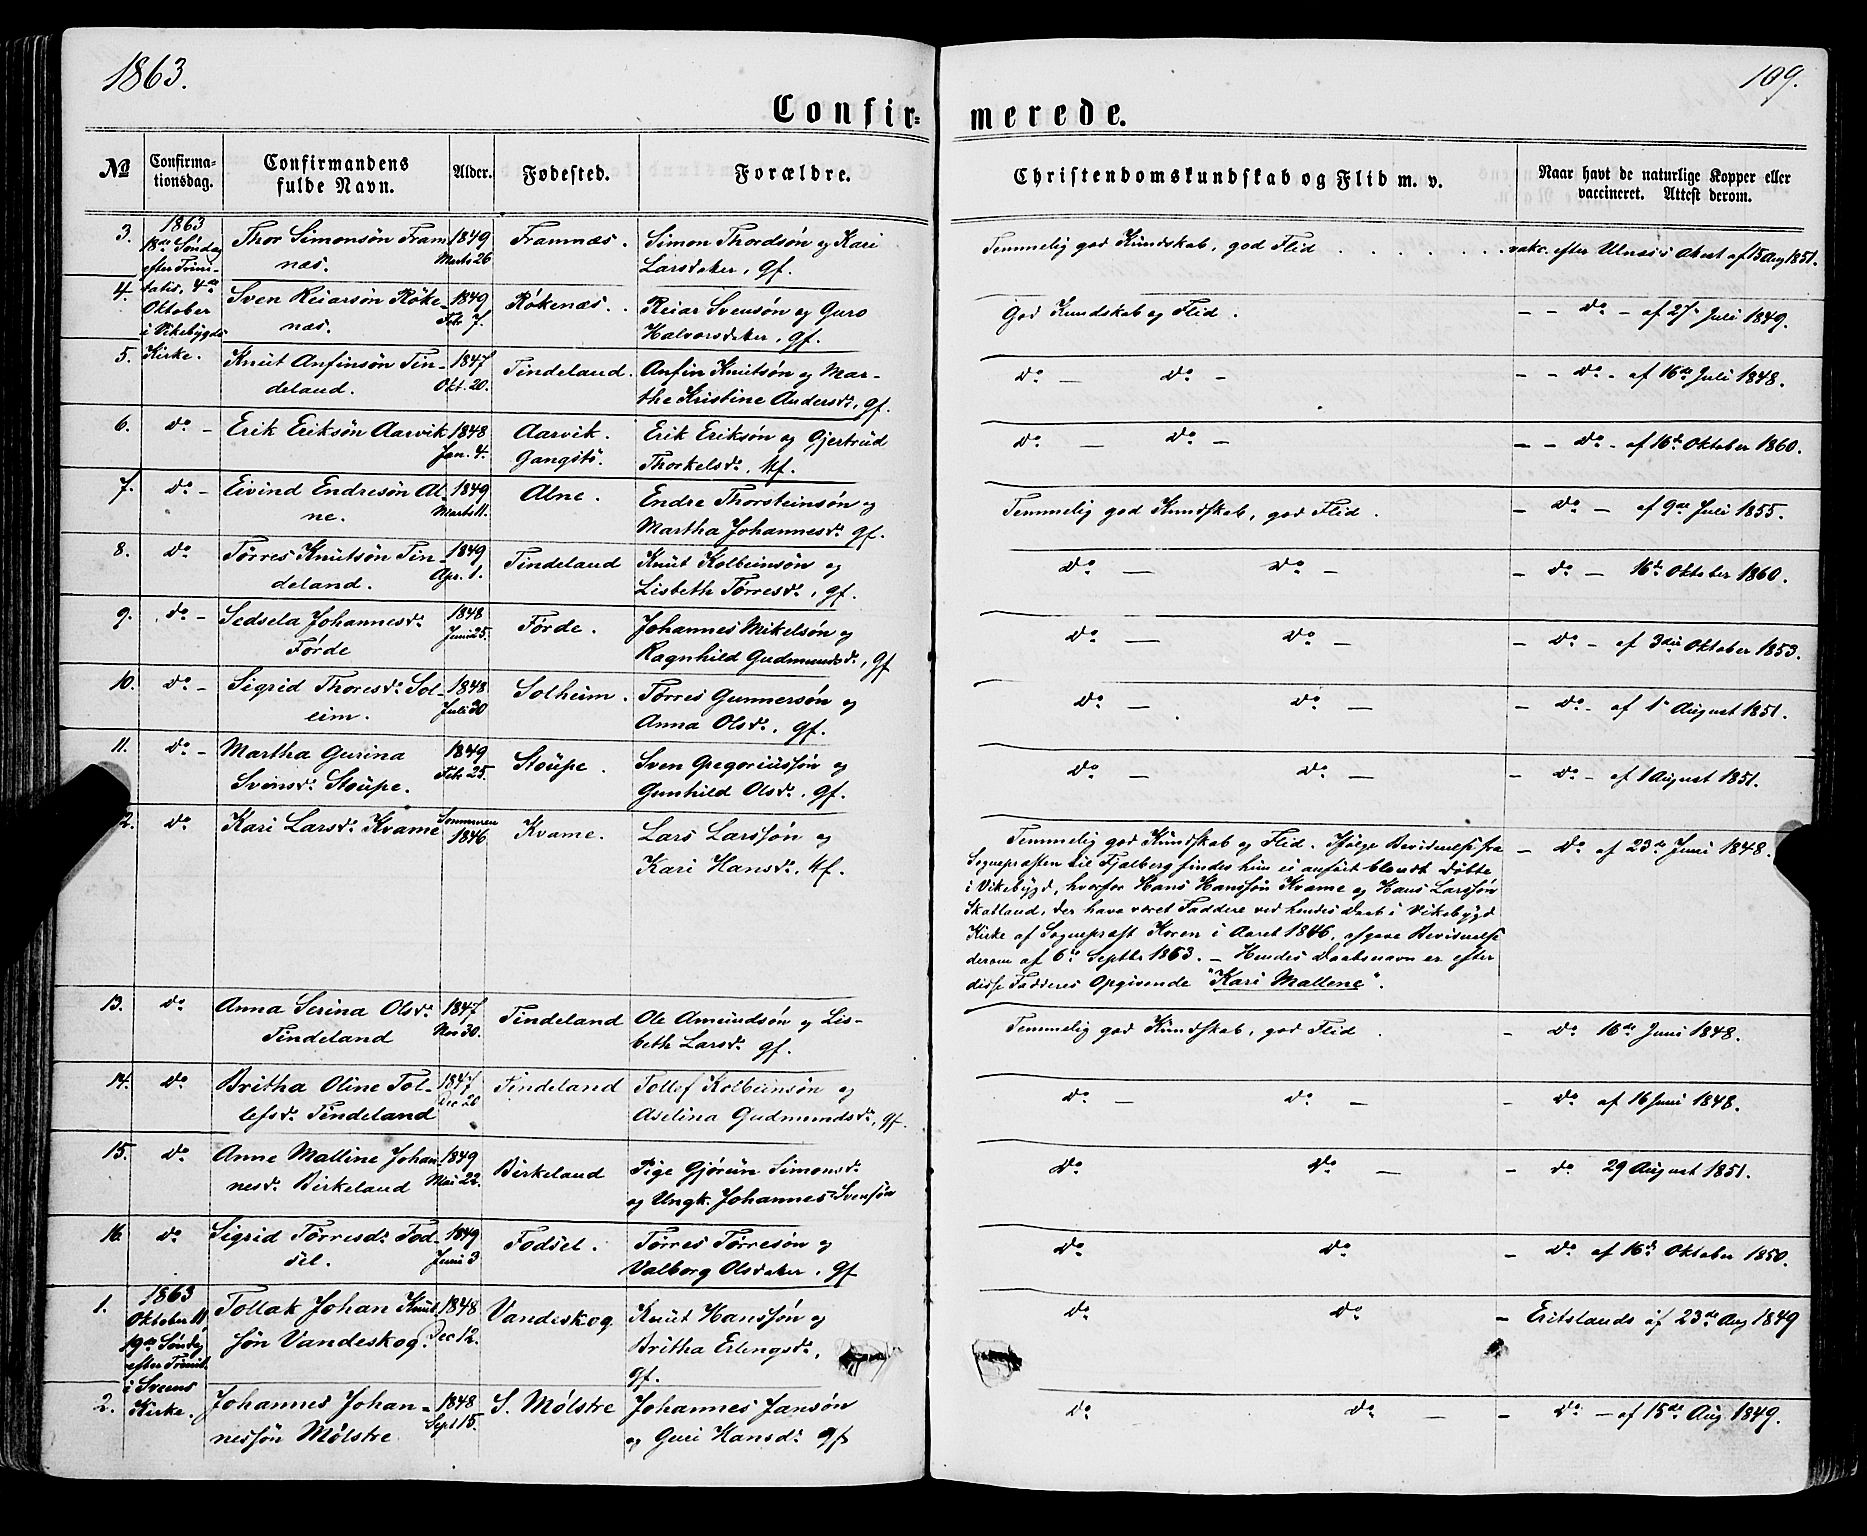 1863.
109.
Confir=
merede.
No
Confirma-
tionsdag.
Confirmandens
fulde Navn.
Alder.
Fødested.
Forældre.
Christendomskundskab og Flid m. v.
Naar havt de naturlige Kopper eller
vaccineret. Attest derom.
3. 1863 18de Søndag efter Trini- Thor Simonsön Fram- næs. 1849 Marts 26 Framnæs. Simon Thordsön og Kari Larsdatter, gf. Temmelig god Kundskab, god Flid vakc. efter Ulnæs's Attest af 15 Aug 1851.
4. tatis, 4de Oktober i Vikebygds Sven Reiarsön Röke- næs. 1849 Feb 7. Rökenæs. Reiar Svensön og Guro Halvorsdatter, gf. God Kundskab og Flid. - - do - af 27 Juli 1849.
5. Kirke. Knut Anfinsön Tin- deland. 1847 Okt. 20. Tindeland. Anfin Knutsön og Mar- the Kristine Andersdr, gf. do - do - - - do - af 16de Juli 1848.
6. do - Erik Eriksön Aarvik 1848 Jan. 4. Aarvik. Erik Eriksön og Gjertrud Thorkelsdr. kf. do - do - - - do - af 16de Oktober 1860.
7. do - Eivind Endresön Al- ne. 1849 Marts 11. Alne. Endre Thorsteinsön og Martha Johannesdr gf. Temmelig god Kundskab, god Flid. - do - af 9de Juli 1855.
8. do Törres Knutsön Tin- deland. 1849 Apr. 1. Tindeland Knut Kolbeinsön og Lisbeth Törresdr, gf. do - do - - do - 16de Oktober 1860.
9. do - Sedsela Johannesdr Förde 1848 Juni 25. Förde. Johannes Mikelsön og Ragnhild Gudmundsdr, gf do - do - - do - af 3die Oktober 1853.
10. do - Sigrid Thoresdr Sol- eim. 1848 Juli 20 Solheim. Törres Gunnersön og Anna Olsdr, gf. do - do - - do - af 1 August 1851.
11. do - Martha Gurina Svensdr Stöupe. 1849 Feb 25. Stöupe. Sven Gregoriussön og Gunhild Olsdr, gf. do - do - - do - af 1 August 1851.
2. do Kari Larsdr Kvame Sommeren 1846 Kvame. Lars Larssön og Kari Hansdr, kf. - do af 23de Juni 1848.
Temmelig god Kundskab og Flid. Ifölge Bevidnelse fra
Sognepræsten til Fjelberg findes hun ei anfört blandt Döbte
i Vikebygd, hvorfor Hans Hanssön Kvame og Hans Larssön
Skatland, der have været Faddere ved hendes Daab i Vikebygd
Kirke af Sognepræst Koren i Aaret 1846, afgave Bevidnelse
derom af 6te Septbr 1863. - Hendes Daabsnavn er efter
disse Fadderes Opgivende "Kari Mallene".
13. do Anna Serina Olsdr Tindeland 1847 Nov 30. Tindeland Ole Amundsön og Lis- beth Larsdr gf. Temmelig god Kundskab, god Flid. - do 16de Juni 1848.
14. do Britha Oline Tol- lefsdr Tindeland 1847 Dec 20 Tindeland Tollef Kolbeinsön og Aselina Gudmundsdr, gf. do - do - - do af 16 Juni 1848.
15. do Anne Malline Johan- nesdr Birkeland 1849 Mai 22. Birkeland Pige Gjörun Simonsdr og Ungk. Johannes Svensön do do - - do 29 August 1851.
16. do Sigrid Törresdr Fod- sel. 1849 Juni 3 Fodsel. Törres Törresön og Valborg Olsdatter, gf do do - do af 16de Oktober 1850.
1. 1863 Oktober 11 19de Söndag efter Trinit. i Sveens Tollak Johan Knut- sön Vandeskog. 1848 Dec 12. Vandeskog. Knut Hanssön og Britha Erlingsdr, gf. do do - Eritslands af 23de Aug 1849
2. Kirke. Johannes Johan- nessön Mölstre 1848 Sept 15. S. Mölstre Johannes Jansön og Guri Hansdr gf do do - - do - af 15de Aug 1849.